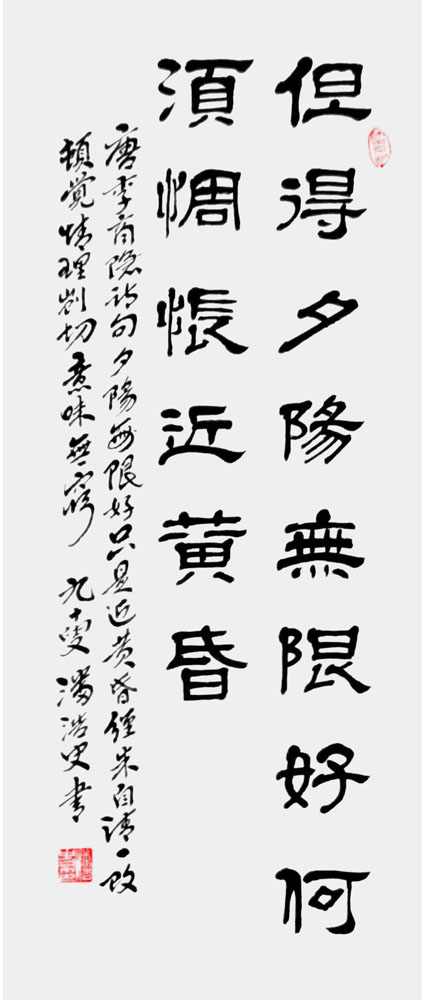 但得夕陽無限好何
湏惆悵近黄昏
唐李商隐詩句夕陽無限好只是近黄昏經朱自清一改
頓覚情理剴切意味無窮 九十叟潘浩史書